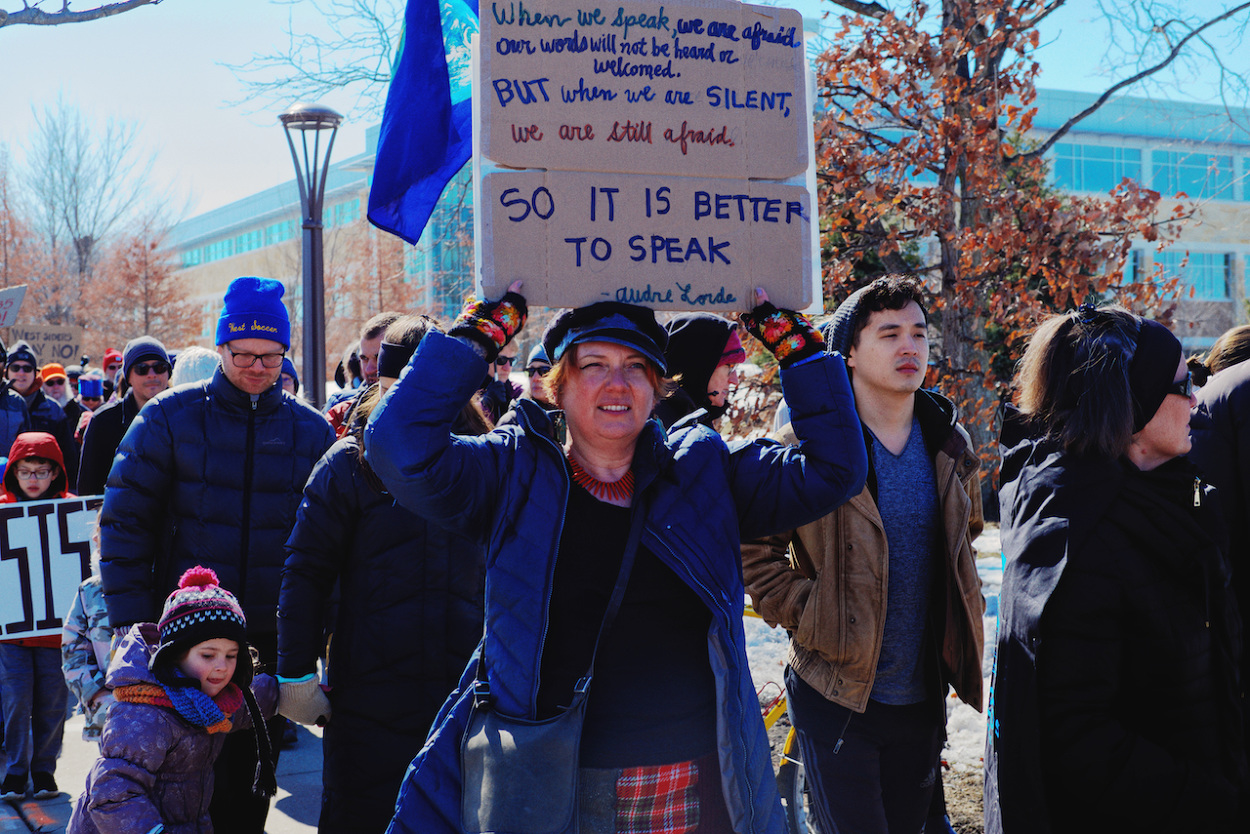 When we speak, we are afraid
our words will not be heard or
welcomed.
BUT when we are SILENT,
we are still afraid.
SO IT IS BETTER
TO SPEAK
-Audre Lorde
West Soccer
NO!
SIST